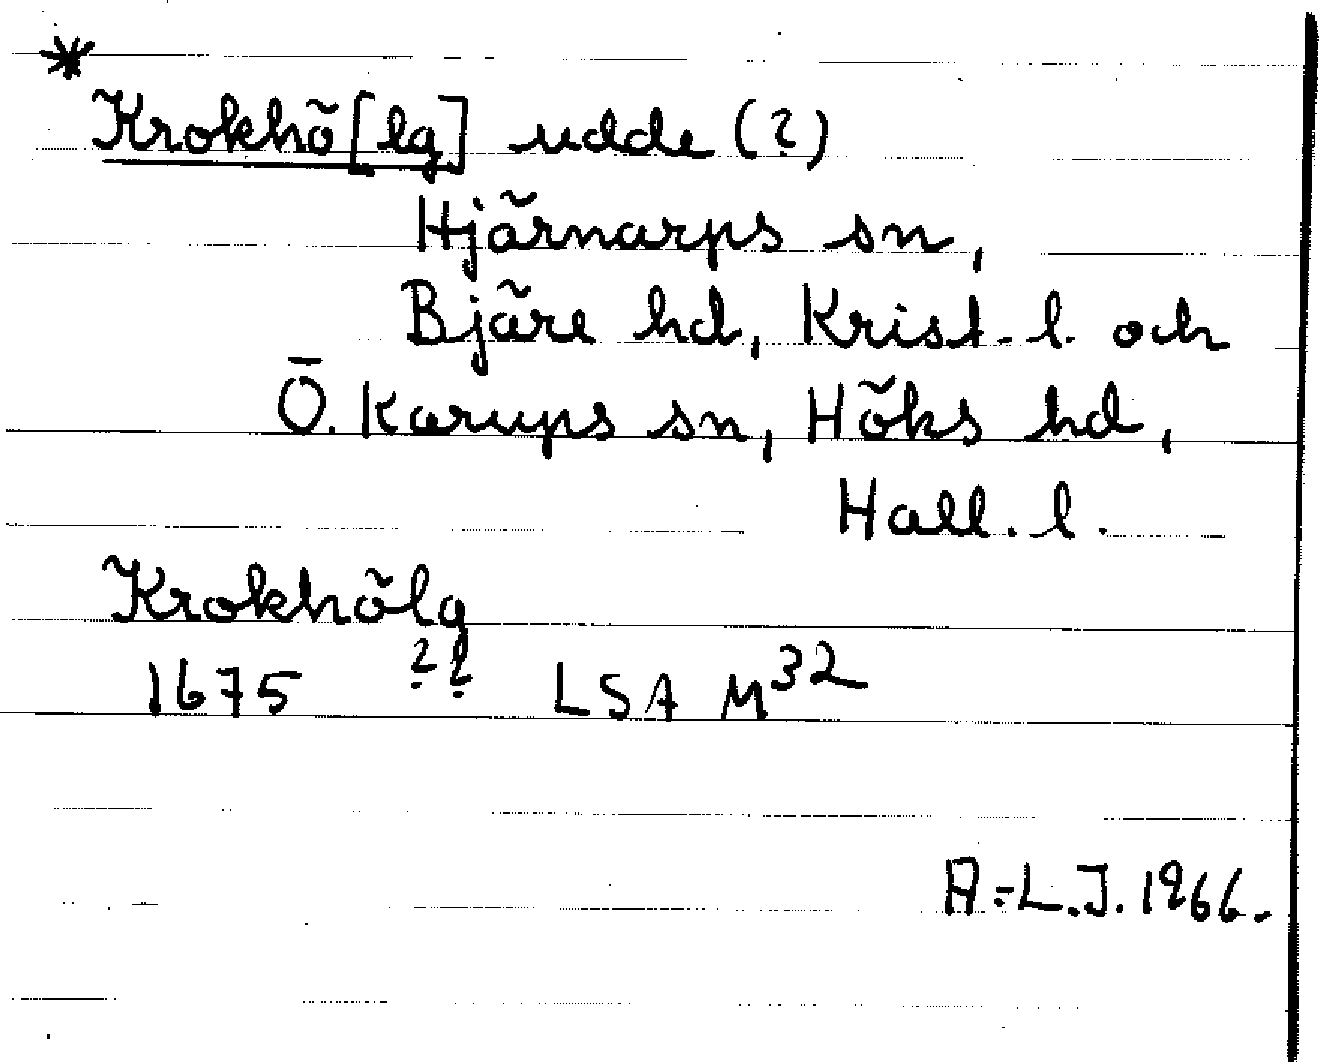 *
Krokhö[lg] udde (?)
Hjärnarps sn,
Bjäre hd, Krist. l. och
Ö. Karups sn, Höks hd,
Hall. l.
Krokhölg
1675 ?? LSA M32
A.-L.J. 1966.